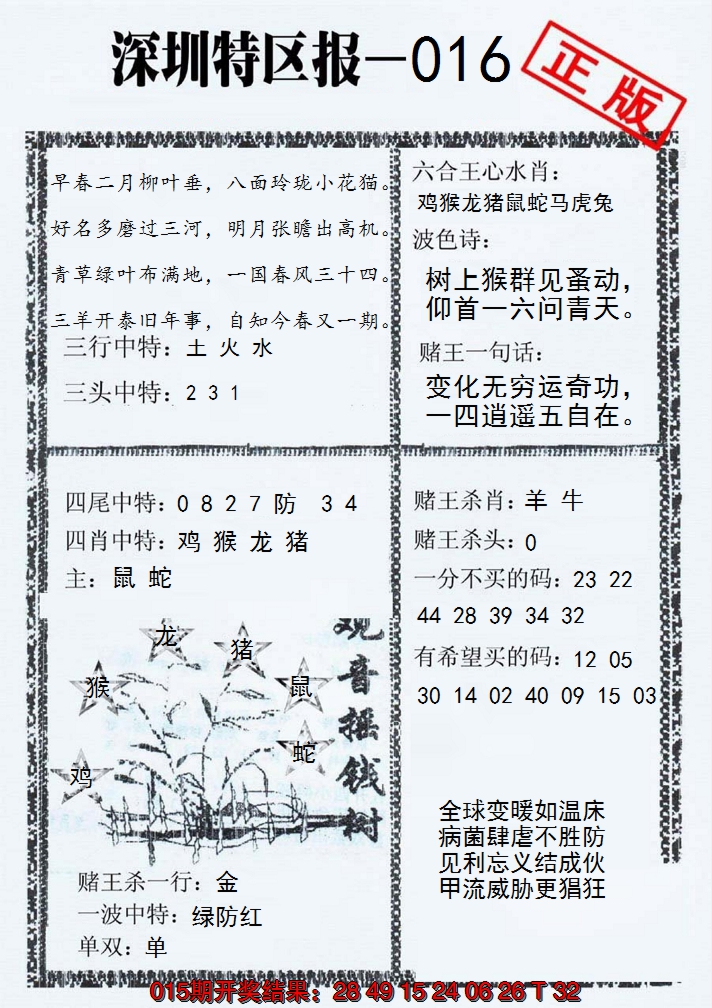 深圳特区报—016
正版
早春二月柳叶垂，八面玲珑小花猫。
好名多磨过三河，明月张瞻出高机。
青草绿叶布满地，一国春风三十四。
三羊开泰旧年事，自知今春又一期。
三行中特：土 火 水
三头中特：2 3 1
六合王心水肖：
鸡猴龙猪鼠蛇马虎兔
波色诗：
树上猴群见蚤动，
仰首一六问青天。
赌王一句话：
变化无穷运奇功，
一四逍遥五自在。
四尾中特：0 8 2 7 防 3 4
四肖中特：鸡 猴 龙 猪
主：鼠 蛇
龙
猪
猴
鼠
蛇
鸡
观音摇钱树
赌王杀一行：金
一波中特：绿防红
单双：单
赌王杀肖：羊 牛
赌王杀头：0
一分不买的码：23 22
44 28 39 34 32
有希望买的码：12 05
30 14 02 40 09 15 03
全球变暖如温床
病菌肆虐不胜防
见利忘义结成伙
甲流威胁更猖狂
015期开奖结果：28 49 15 24 06 26 T 32